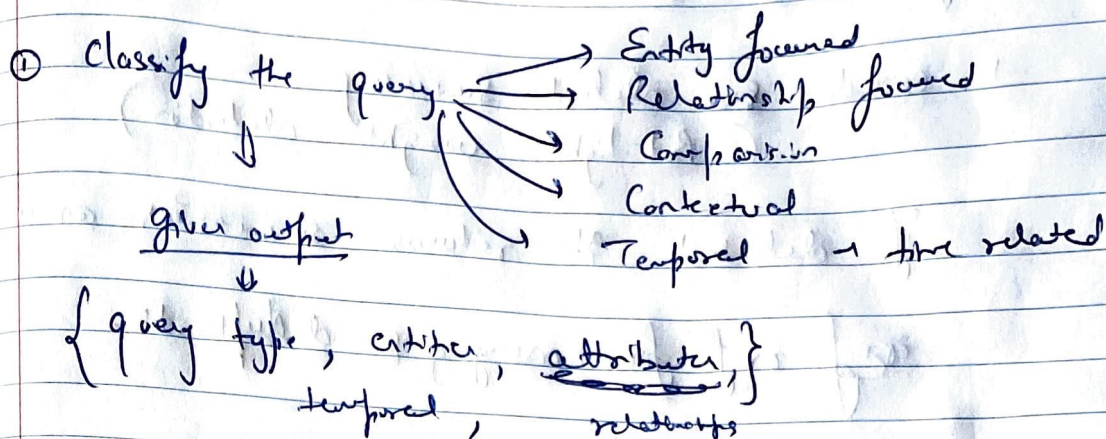 ① Classify the query → Entity focused
→ Relationship focused
→ Comparison
→ Contextual
→ Temporal → time related
⇓
gives output
⇓
{ query type, entities, attributes, }
temporal, relationships